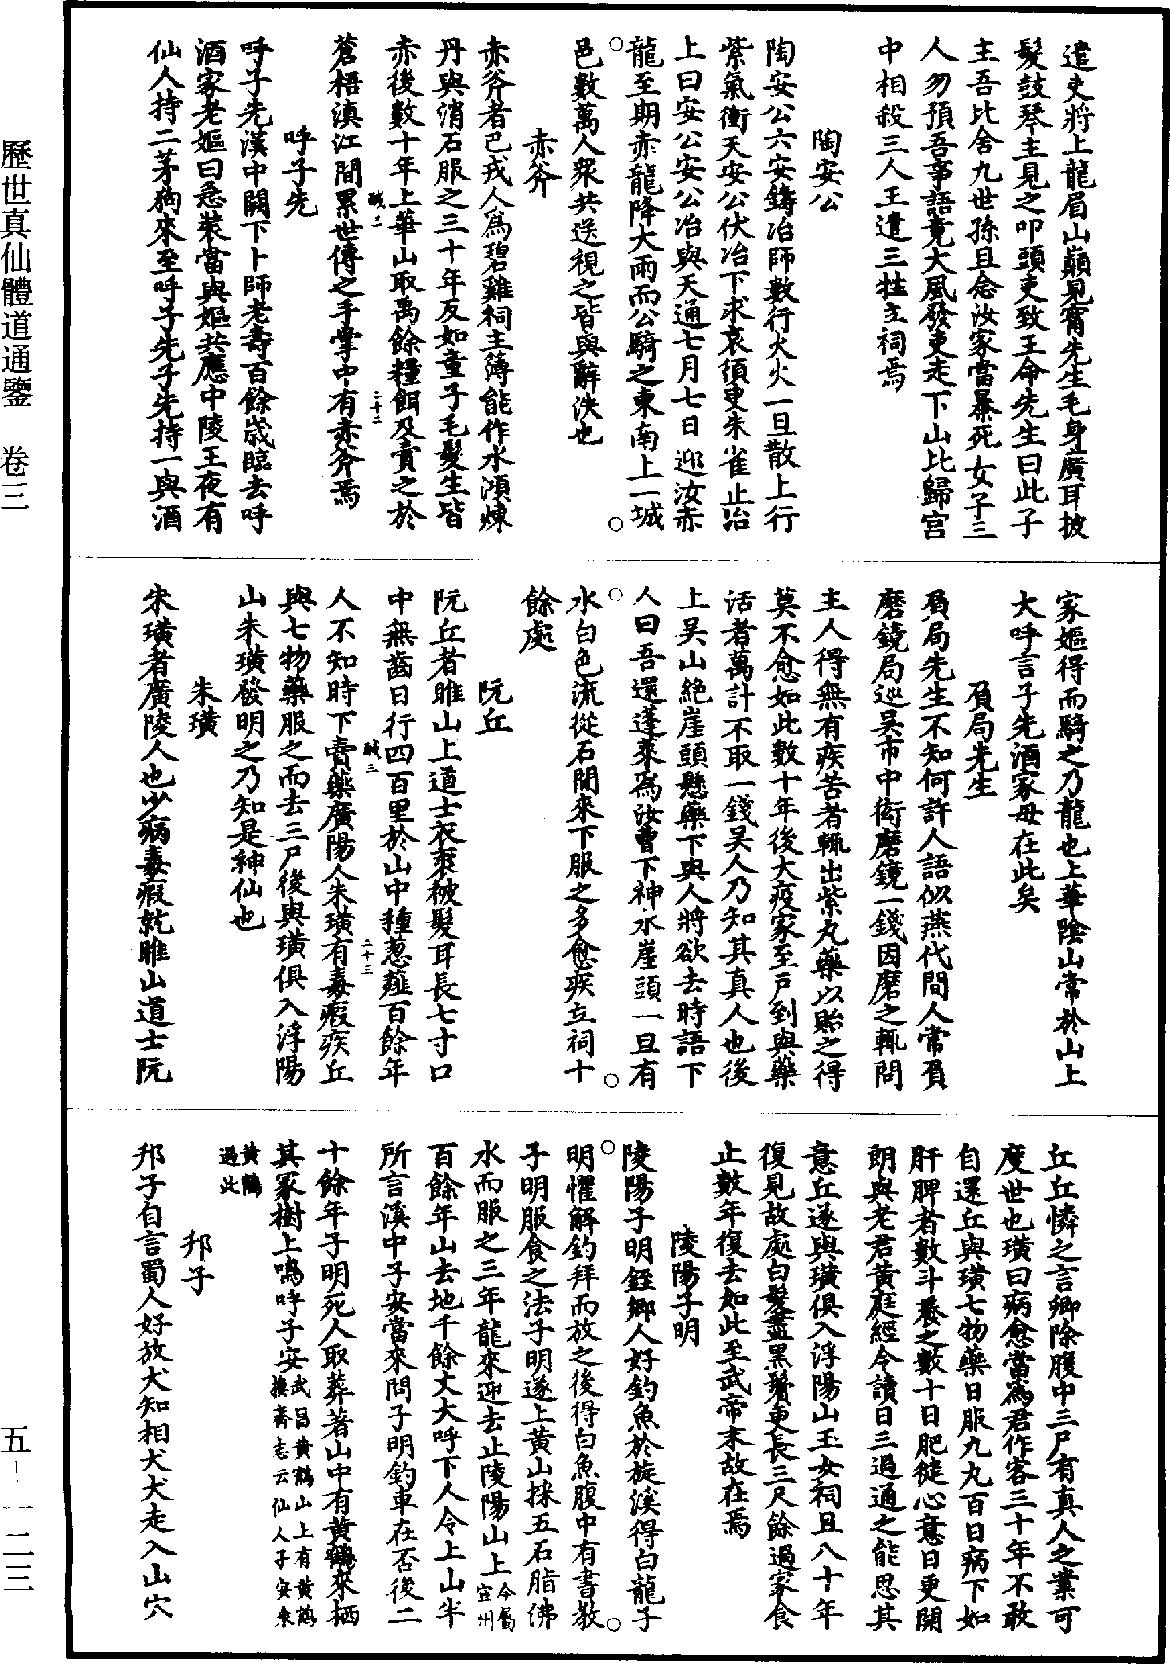 遣吏將上龍眉山巔見甯先生毛身廣耳披
髮鼓琴主見之叩頭吏致王命先生曰此子
主吾比舍九世孫且念汝家當暴死女子三
人勿預吾事語竟大風發吏走下山比歸宮
中相殺三人王遣三牲立祠焉
陶安公
陶安公六安鑄冶師數行火火一旦散上行
紫氣衝天安公伏冶下求哀須臾朱雀止冶
上曰安公安公冶與天通七月七日迎汝赤
龍至期赤龍降大雨而公騎之東南上一城
邑數萬人衆共送視之皆與辭決也
赤斧
赤斧者巴戎人爲碧雞祠主簿能作水澒煉
丹與消石服之三十年反如童子毛髮生皆
赤後數十年上華山取禹餘糧餌及賣之於
蒼梧滇江間累世傳之手掌中有赤斧焉
呼子先
呼子先漢中關下卜師老壽百餘歲臨去呼
酒家老嫗曰急裝當與嫗共應中陵王夜有
仙人持二茅狗來至呼子先子先持一與酒
家嫗得而騎之乃龍也上華陰山常於山上
大呼言子先酒家母在此矣
負局先生
負局先生不知何許人語似燕代間人常負
磨鏡局巡吳市中衒磨鏡一錢因磨之輒問
主人得無有疾苦者輒出紫丸藥以貽之得
莫不愈如此數十年後大疫家至戶到與藥
活者萬計不取一錢吳人乃知其真人也後
上吳山絕崖頭懸藥下與人將欲去時語下
人曰吾還蓬萊爲汝曹下神水崖頭一旦有
水白色流從石間來下服之多愈疾立祠十
餘處
阮丘
阮丘者睢山上道士衣裘被髮耳長七寸口
中無齒日行四百里於山中種葱薤百餘年
人不知時下賣藥廣陽人朱璜有毒瘕疾丘
與七物藥服之而去三尸後與璜俱入浮陽
山朱璜發明之乃知是神仙也
朱璜
朱璜者廣陵人也少病毒瘕就睢山道士阮
丘丘憐之言卿除腹中三尸有真人之業可
度世也璜曰病愈當爲君作客三十年不敢
自還丘與璜七物藥日服九丸百日病下如
肝脾者數斗養之數十日肥健心意日更開
朗與老君黃庭經令讀日三過通之能思其
意丘遂與璜俱入浮陽山玉女祠且八十年
復見故處白髮盡黑鬢更長三尺餘過家食
止數年復去如此至武帝末故在焉
陵陽子明
陵陽子明銍鄉人好釣魚於旋溪得白龍子
明懼解釣拜而放之後得白魚腹中有書教
子明服食之法子明遂上黃山採五石脂沸
水而服之三年龍來迎去止陵陽山上今屬宣州
百餘年山去地千餘丈大呼下人令上山半
所言溪中子安當來問子明釣車在否後二
十餘年子明死人取葬著山中有黃鶴來栖
其冢樹上鳴呼子安武昌黃鶴山上有黃鶴樓齊志云仙人子安乘
黃鶴過此
邗子
邗子自言蜀人好放犬知相犬犬走入山穴
歷世真仙體道通鑒 卷三
五-一二三